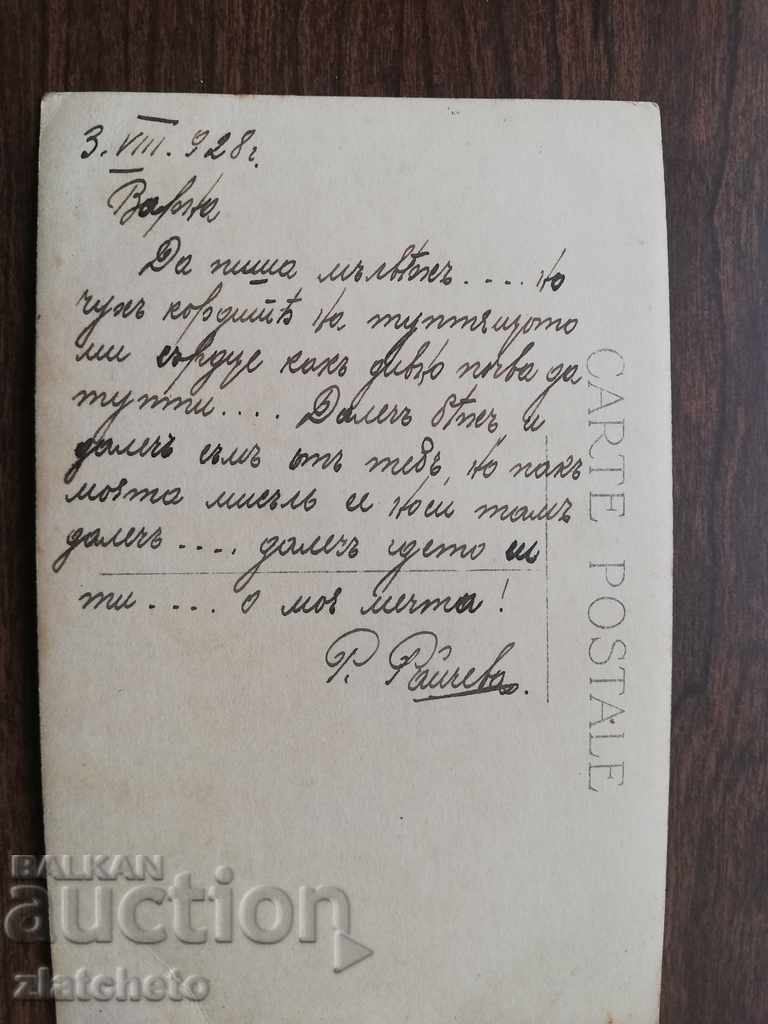 3. VIII. 928 г.
Варна
Да пиша мълвѣхъ.... но
чухъ кордитѣ на туптящото
ми сърдце какъ дивно почва да
тупти.... Далечъ бѣхъ и
далечъ съмъ отъ тебъ, но пакъ
моята мисъль се носи тамъ
далечъ.... далечъ гдето си
ти.... о моя мечта!
Р. Райчева.
CARTE POSTALE
BALKAN
auction
zlatcheto